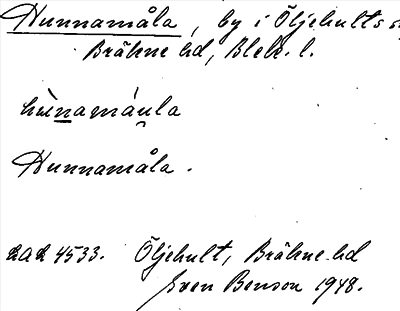 Hunnamåla, by i Öljehults s
Bräkne hd, Blek. l.
hùnamáula
Hunnamåla.
4533. Öljehult, Bräkne hd
Sven Benson 1948.